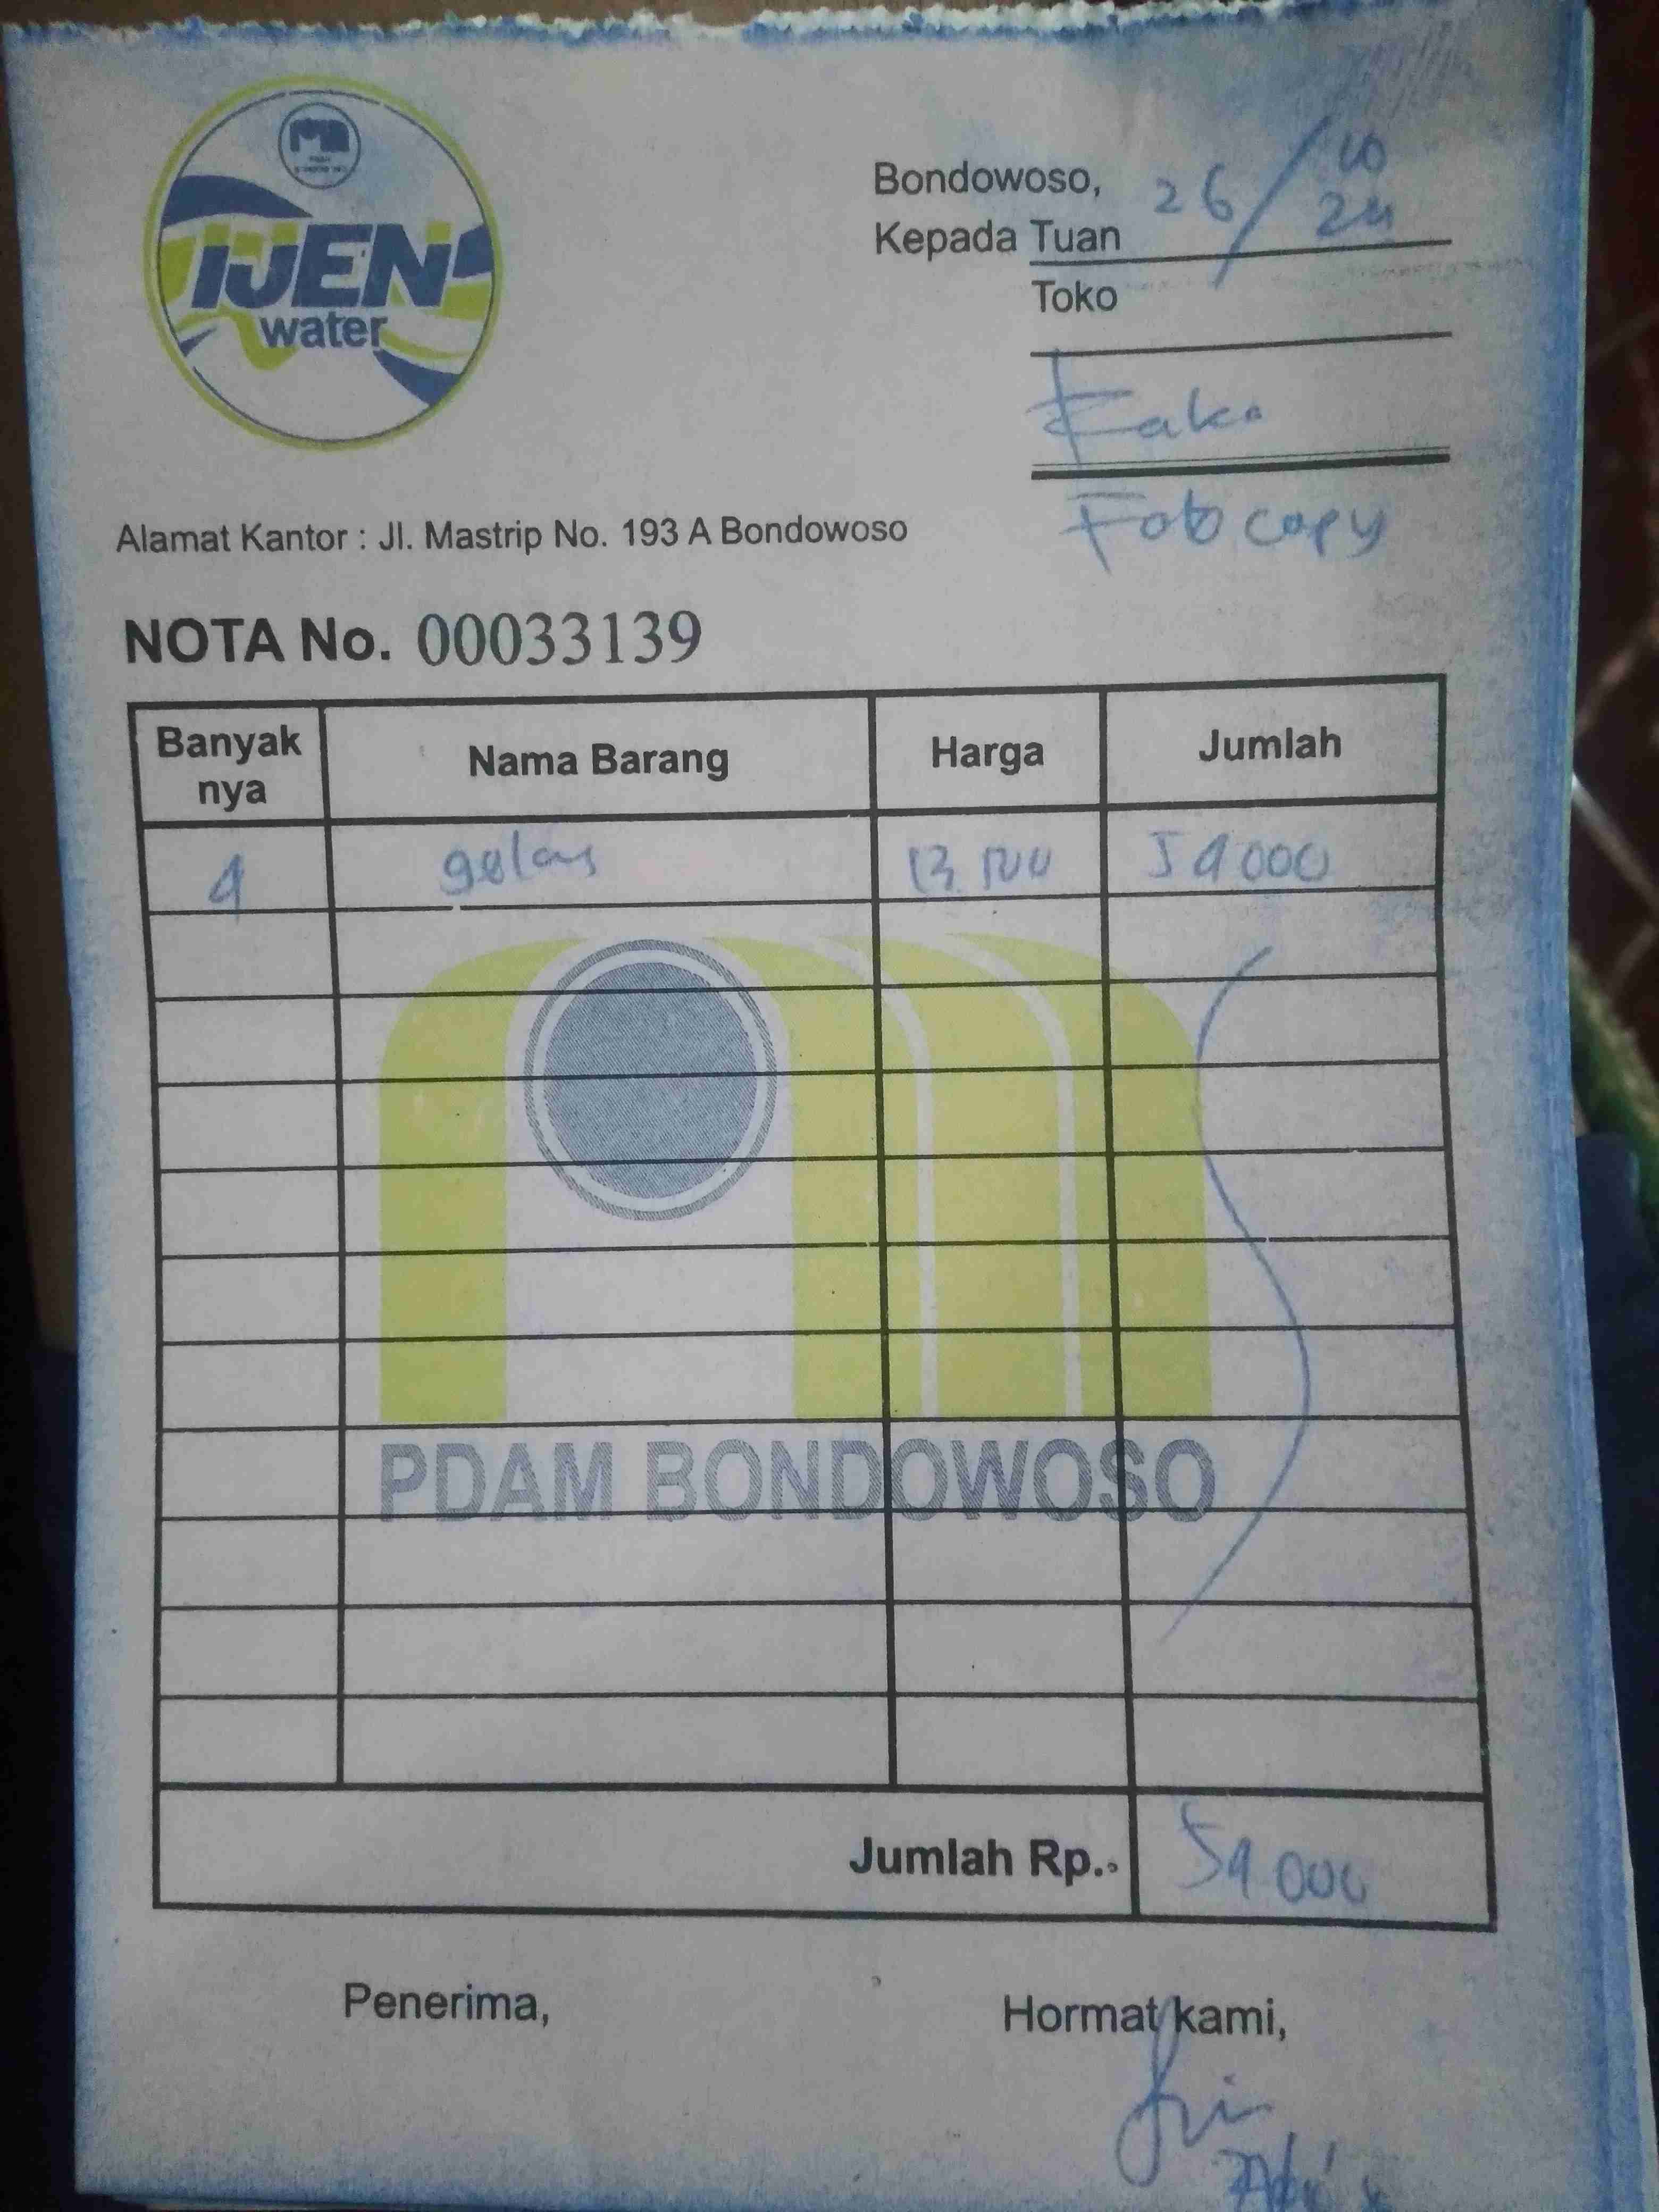 IJEN
water
Bondowoso, 26/10
24
Kepada Tuan
Toko
Foto copy
Alamat Kantor : Jl. Mastrip No. 193 A Bondowoso
NOTA No. 00033139
Banyak nya Nama Barang Harga Jumlah
4 gelas 13.500 54000
PDAM BONDOWOSO
Jumlah Rp. 54.000
Penerima, Hormat kami,